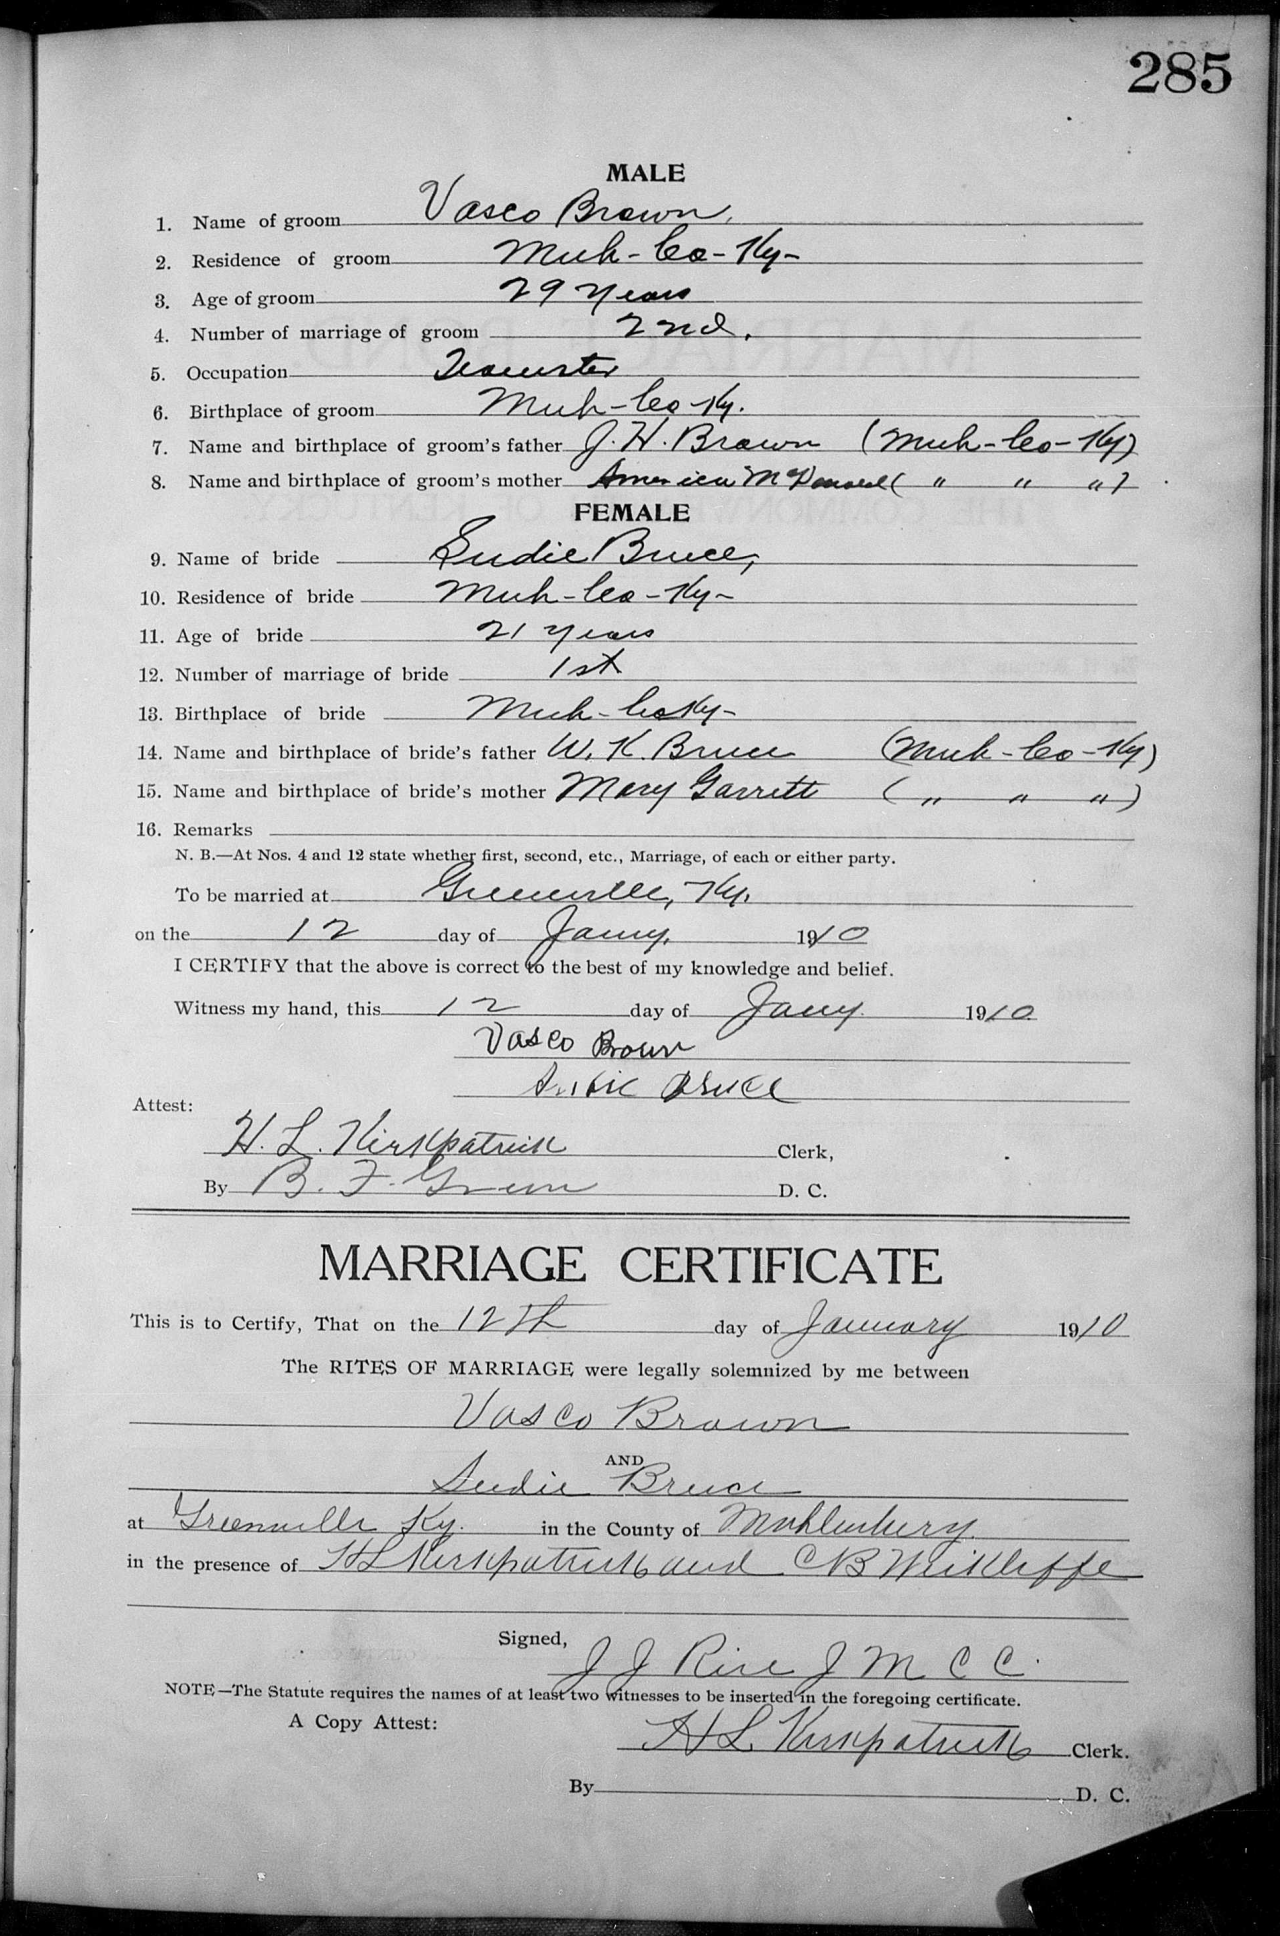 285
MALE
1. Name of groom Vasco Brown,
2. Residence of groom Muh-Co-Ky-
3. Age of groom 29 years
4. Number of marriage of groom 2nd.
5. Occupation Teamster
6. Birthplace of groom Muh-Co-Ky.
7. Name and birthplace of groom's father J. H. Brown (Muh-Co-Ky)
8. Name and birthplace of groom's mother America McDonald ( " " " )
FEMALE
9. Name of bride Sudie Bruce,
10. Residence of bride Muh-Co-Ky-
11. Age of bride 21 years
12. Number of marriage of bride 1st
13. Birthplace of bride Muh-Co Ky-
14. Name and birthplace of bride's father W. K. Bruce (Muh-Co-Ky)
15. Name and birthplace of bride's mother Mary Garrett ( " " " )
16. Remarks
N. B.—At Nos. 4 and 12 state whether first, second, etc., Marriage, of each or either party.
To be married at Greenville, Ky.
on the 12 day of Jany. 1910
I CERTIFY that the above is correct to the best of my knowledge and belief.
Witness my hand, this 12 day of Jany. 1910
Vasco Brown
Sudie Bruce
Attest:
H. L. Kirkpatrick Clerk,
By B. F. Green D. C.
MARRIAGE CERTIFICATE
This is to Certify, That on the 12th day of January 1910
The RITES OF MARRIAGE were legally solemnized by me between
Vasco Brown
AND
Sudie Bruce
at Greenville Ky. in the County of Muhlenberg
in the presence of H L Kirkpatrick and C B Wickliffe
Signed,
J J Rice J M C C.
NOTE—The Statute requires the names of at least two witnesses to be inserted in the foregoing certificate.
A Copy Attest:
H L Kirkpatrick Clerk.
By D. C.